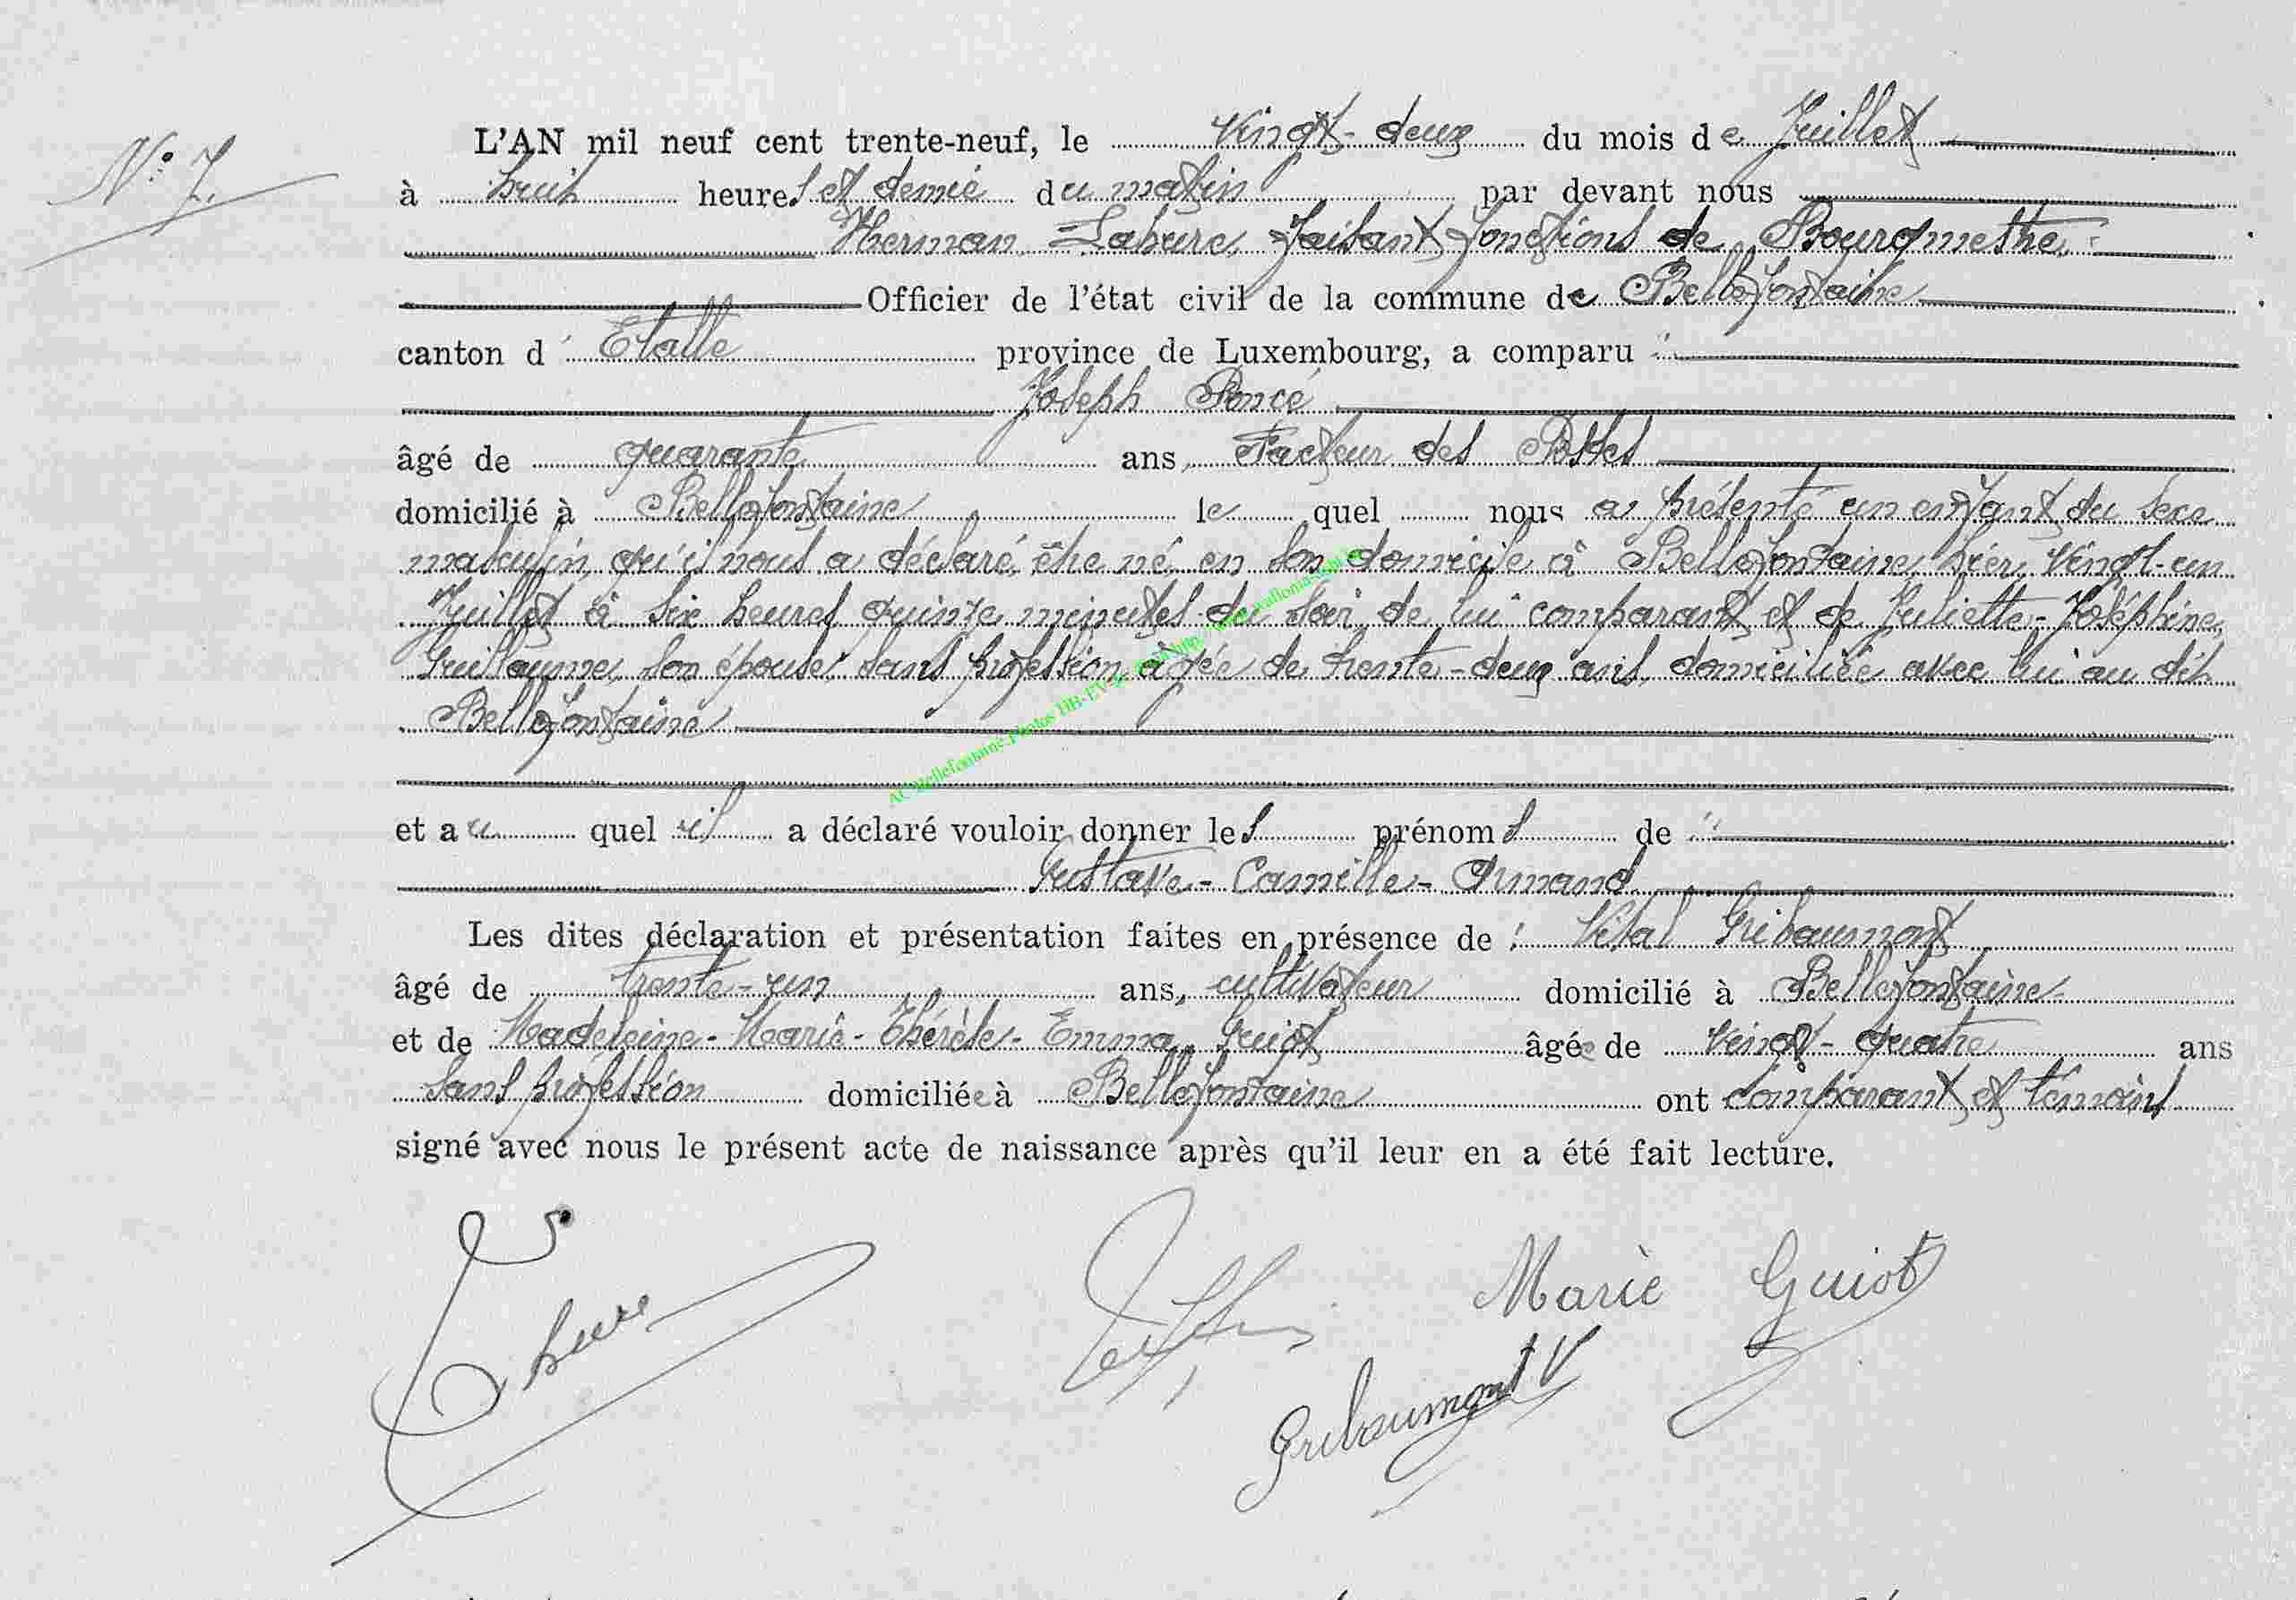 N° 7.
L'AN mil neuf cent trente-neuf, le vingt-deux du mois de Juillet
à huit heures et demie du matin par devant nous
Herman Lahure, faisant fonctions de Bourgmestre,
Officier de l'état civil de la commune de Bellefontaine
canton d'Etalle province de Luxembourg, a comparu :
Joseph Poncé
âgé de quarante ans, Facteur des Postes
domicilié à Bellefontaine lequel nous a présenté un enfant du sexe
masculin, qu'il nous a déclaré être né en son domicile à Bellefontaine, hier, vingt-un
Juillet à six heures quinze minutes du soir de lui comparant et de Juliette-Joséphine
Guillaume, son épouse, sans profession, âgée de trente-deux ans, domiciliée avec lui au dit
Bellefontaine
AC Bellefontaine Photos HB-EV
et auquel il a déclaré vouloir donner les prénoms de :
Gustave-Camille-Armand
Les dites déclaration et présentation faites en présence de : Vital Gribaumont
âgé de trente-un ans, cultivateur domicilié à Bellefontaine
et de Madeleine-Marie-Thérèse-Emma Guiot âgée de vingt-quatre ans
sans profession domiciliée à Bellefontaine ont comparant et témoins
signé avec nous le présent acte de naissance après qu'il leur en a été fait lecture.
Lahure
Marie Guiot
Gribaumont V